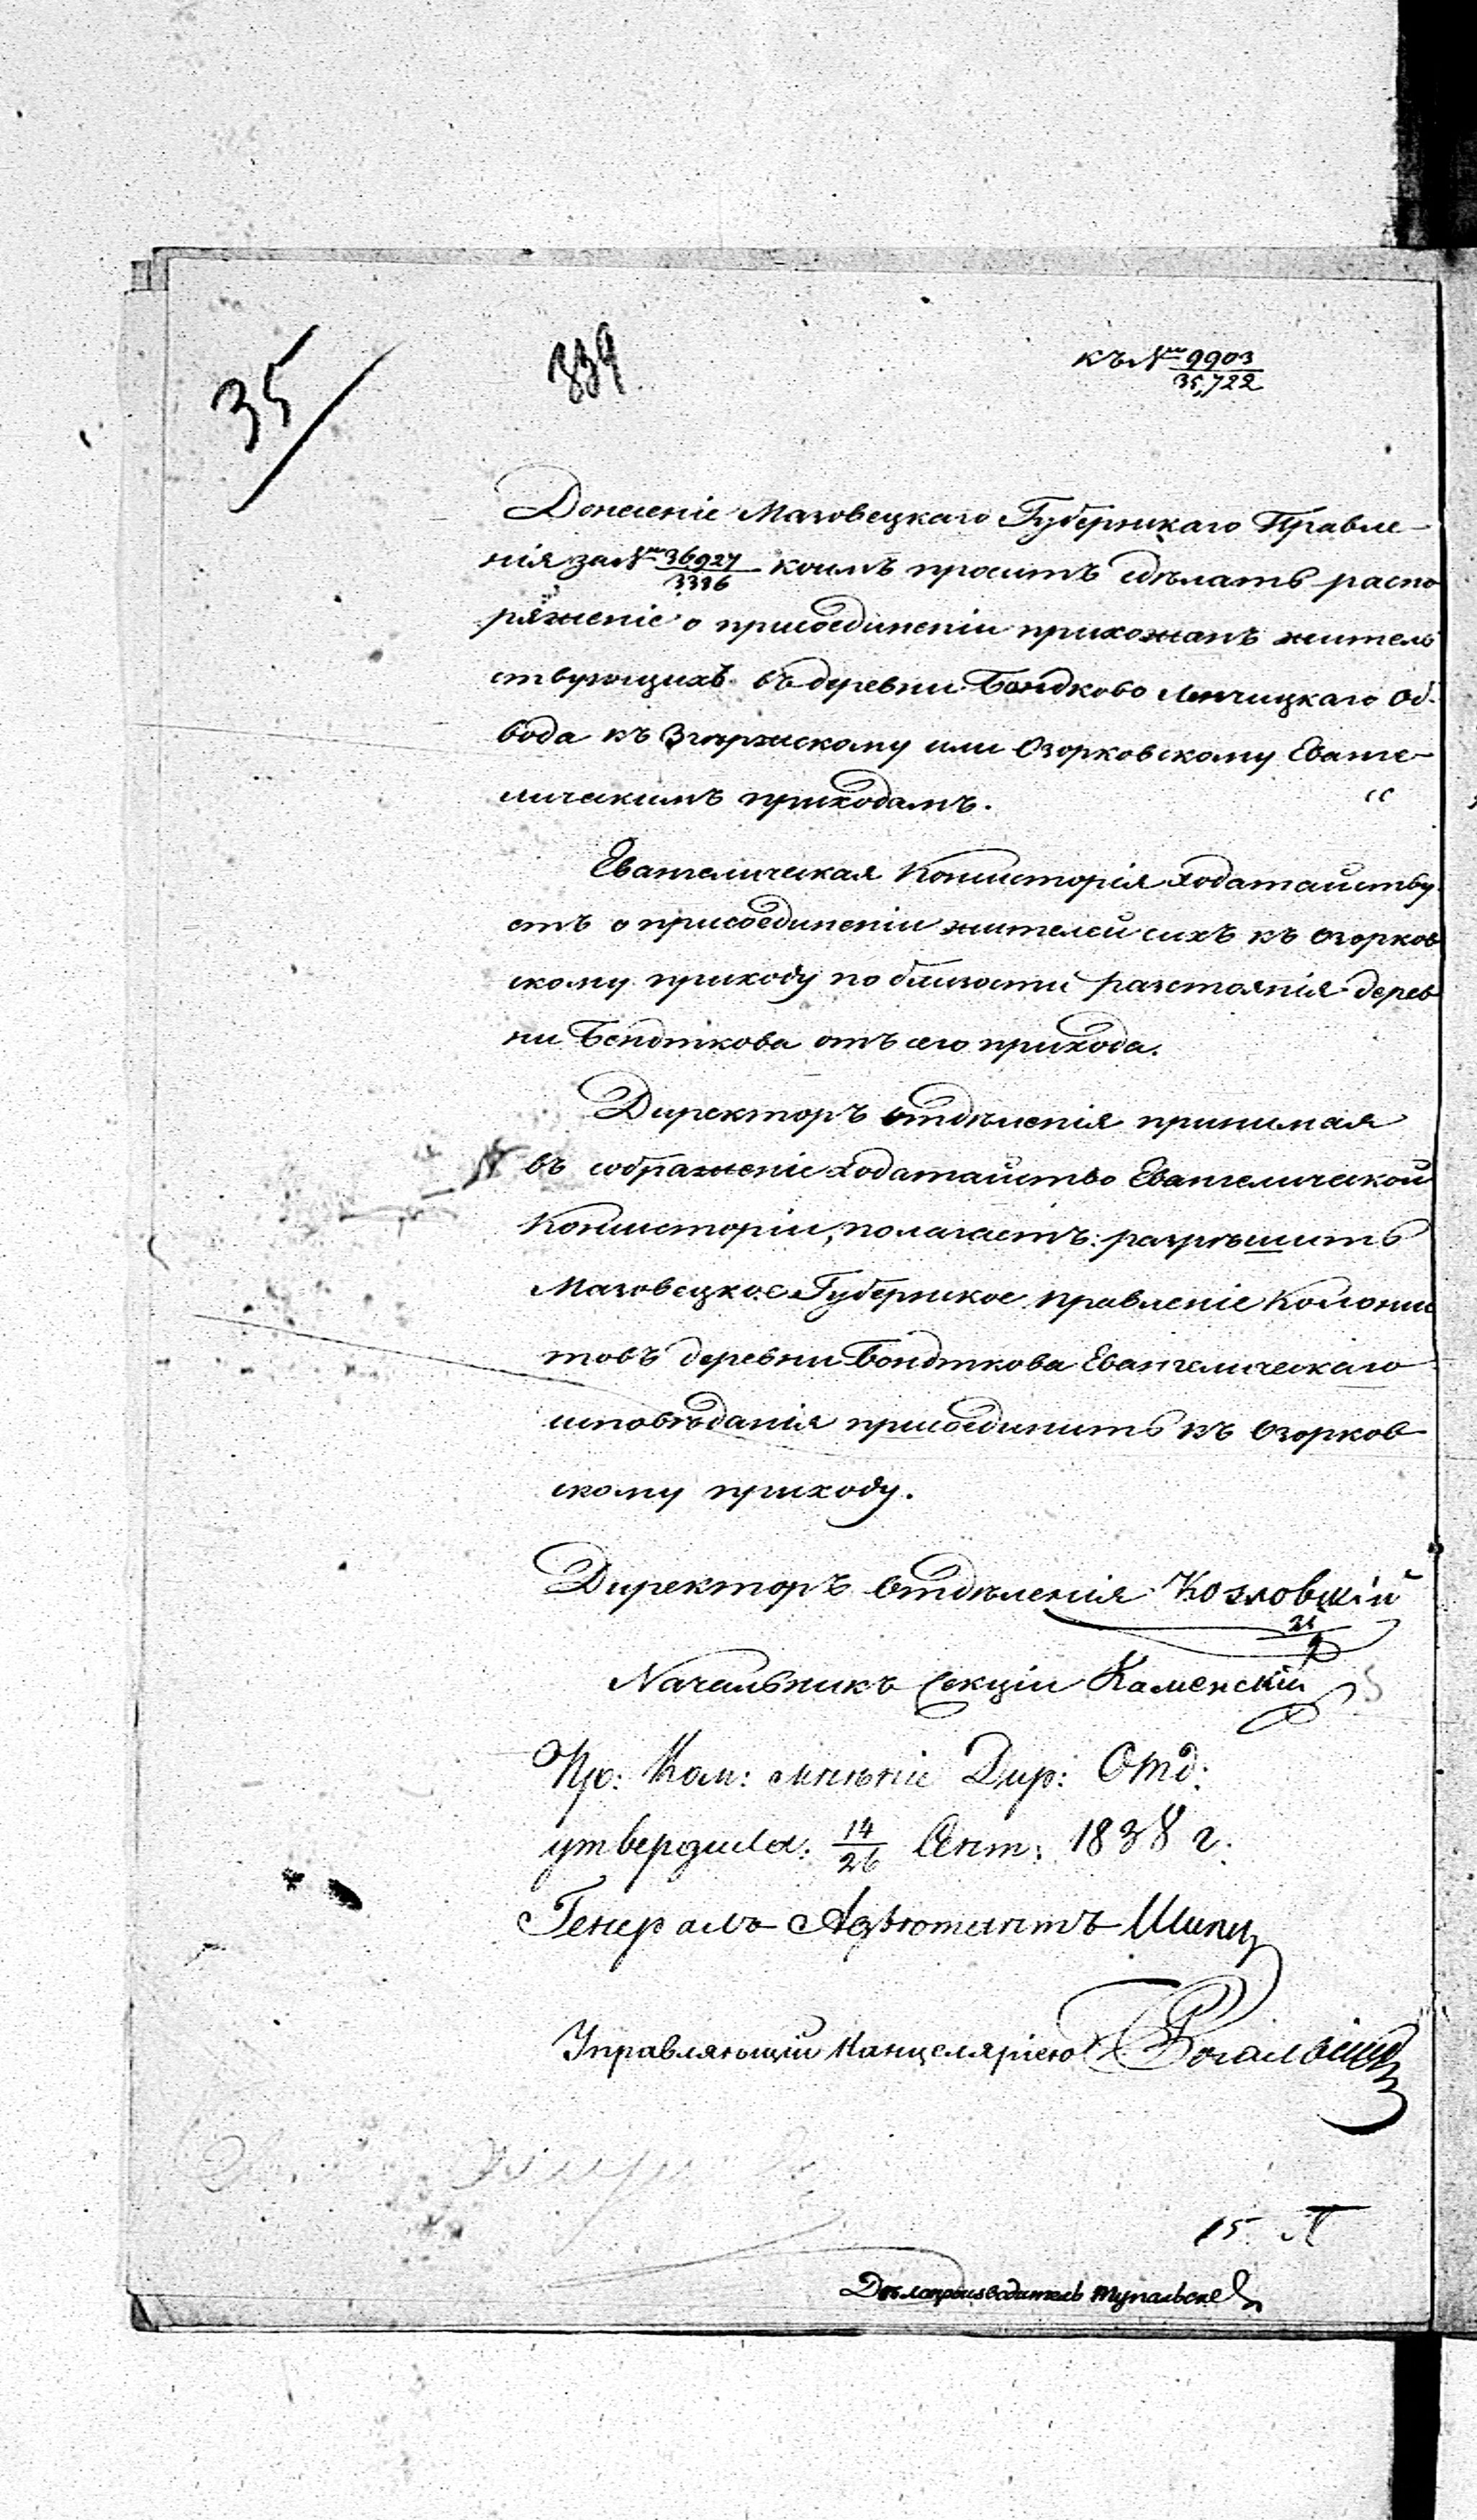 35
339
къ №ру 9903/35,722
Донесеніе Мазовецкаго Губернскаго Правле-
нія за №ру 36927/3396 коимъ проситъ сдѣлать распо
ряженіе о присоединеніи прихожанъ житель
ствующихъ въ деревни Бондково Ленчицкаго Об-
вода къ Згержскому или Озорковскому Еванге-
лическимъ приходамъ.
Евангелическая Консисторія ходатайству
етъ о присоединеніи жителей сихъ къ Озорков
скому приходу по близости разстоянія дерев
ни Бендткова отъ сего прихода.
Директоръ Отдѣленія принимая
въ соображеніе ходатайство Евангелической
Консисторіи, полагаетъ: разрѣшить
Мазовецкое Губернское Правленіе Колонис
товъ деревни Бондткова Евангелическаго
исповѣданія присоединить къ Озорков
скому приходу.
Директоръ Отдѣленія Козловскій
Начальникъ Секціи Каменскій
Пр: Ком: мнѣніе Дир: Отд:
утвердила: 14/26 Сент: 1838 г.
Генералъ Адъютантъ Шипов
Управляющій Канцеляріею
15
Дѣлопроизводитель